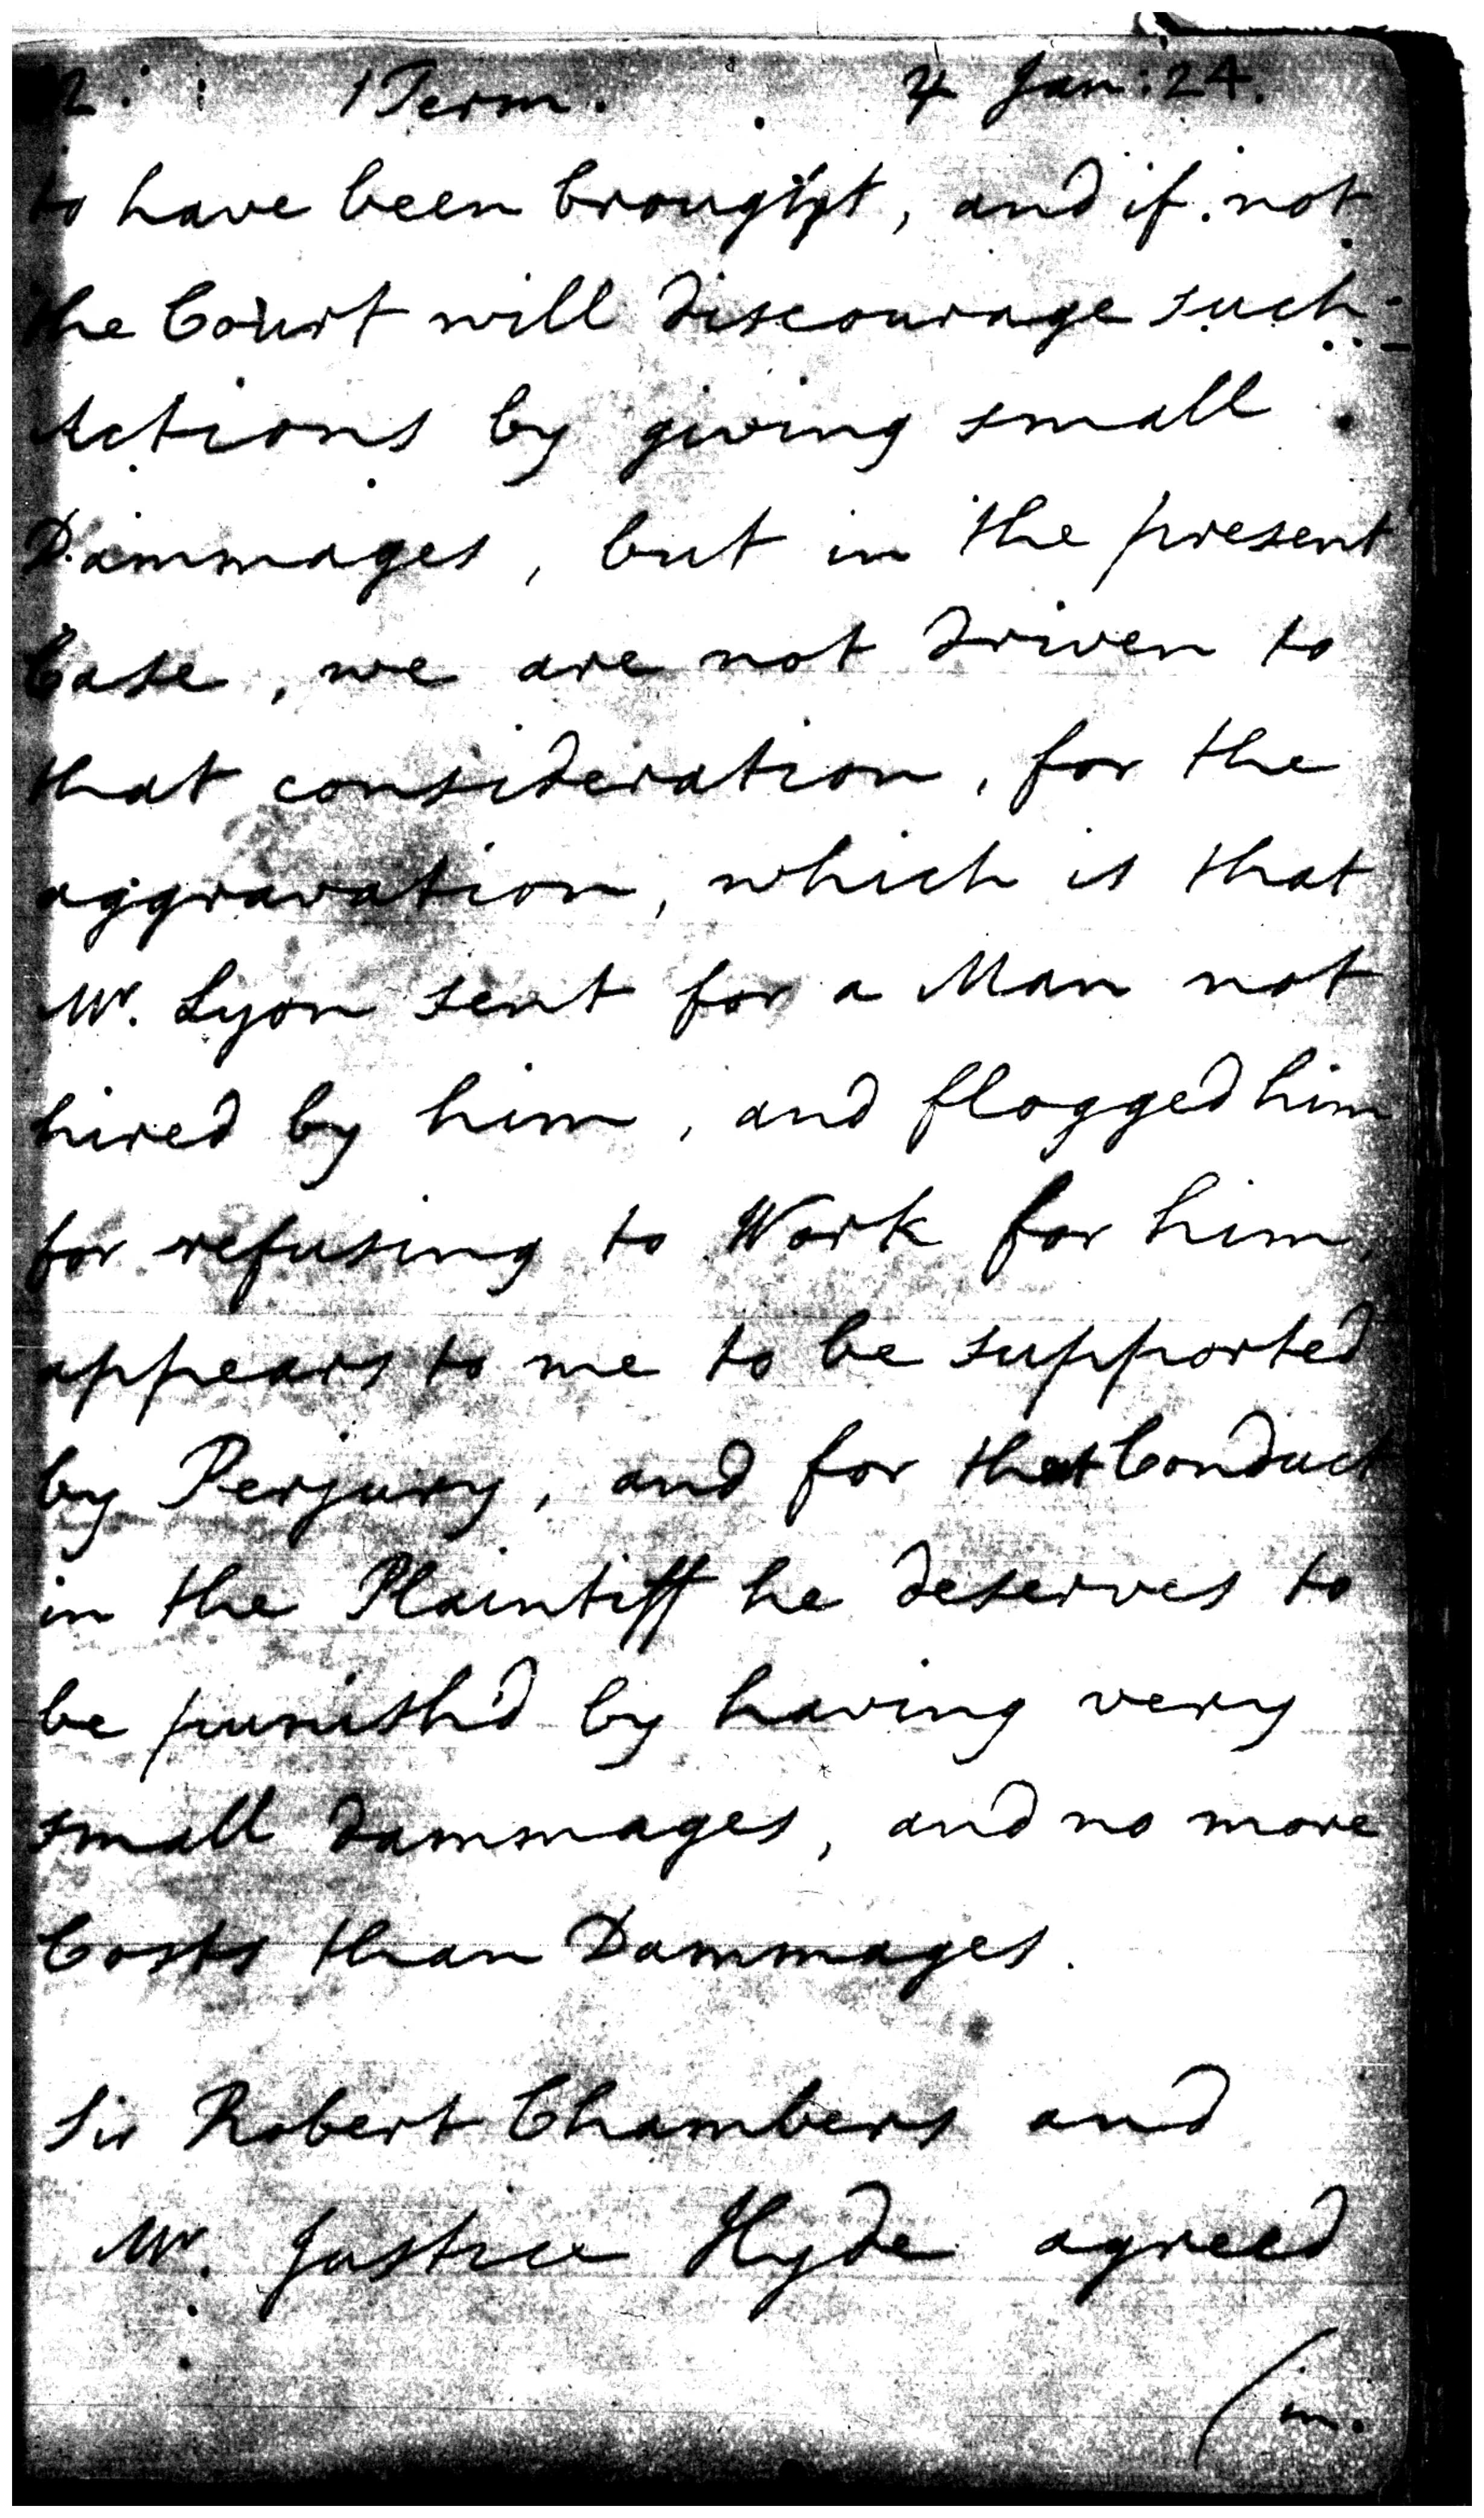 2. 1 Term. ♃ Jan: 24.
to have been brought, and if not
the Court will discourage such
Actions by giving small
Dammages, but in the present
Case, we are not driven to
that consideration, for the
aggravation, which is that
Mr. Lyon sent for a Man not
hired by him, and flogged him
for refusing to Work for him,
appears to me to be supported
by Perjury, and for that Conduct
in the Plaintiff he deserves to
be punish'd by having very
small dammages, and no more
Costs than Dammages.
Sir Robert Chambers and
Mr. Justice Hyde agreed
(in.